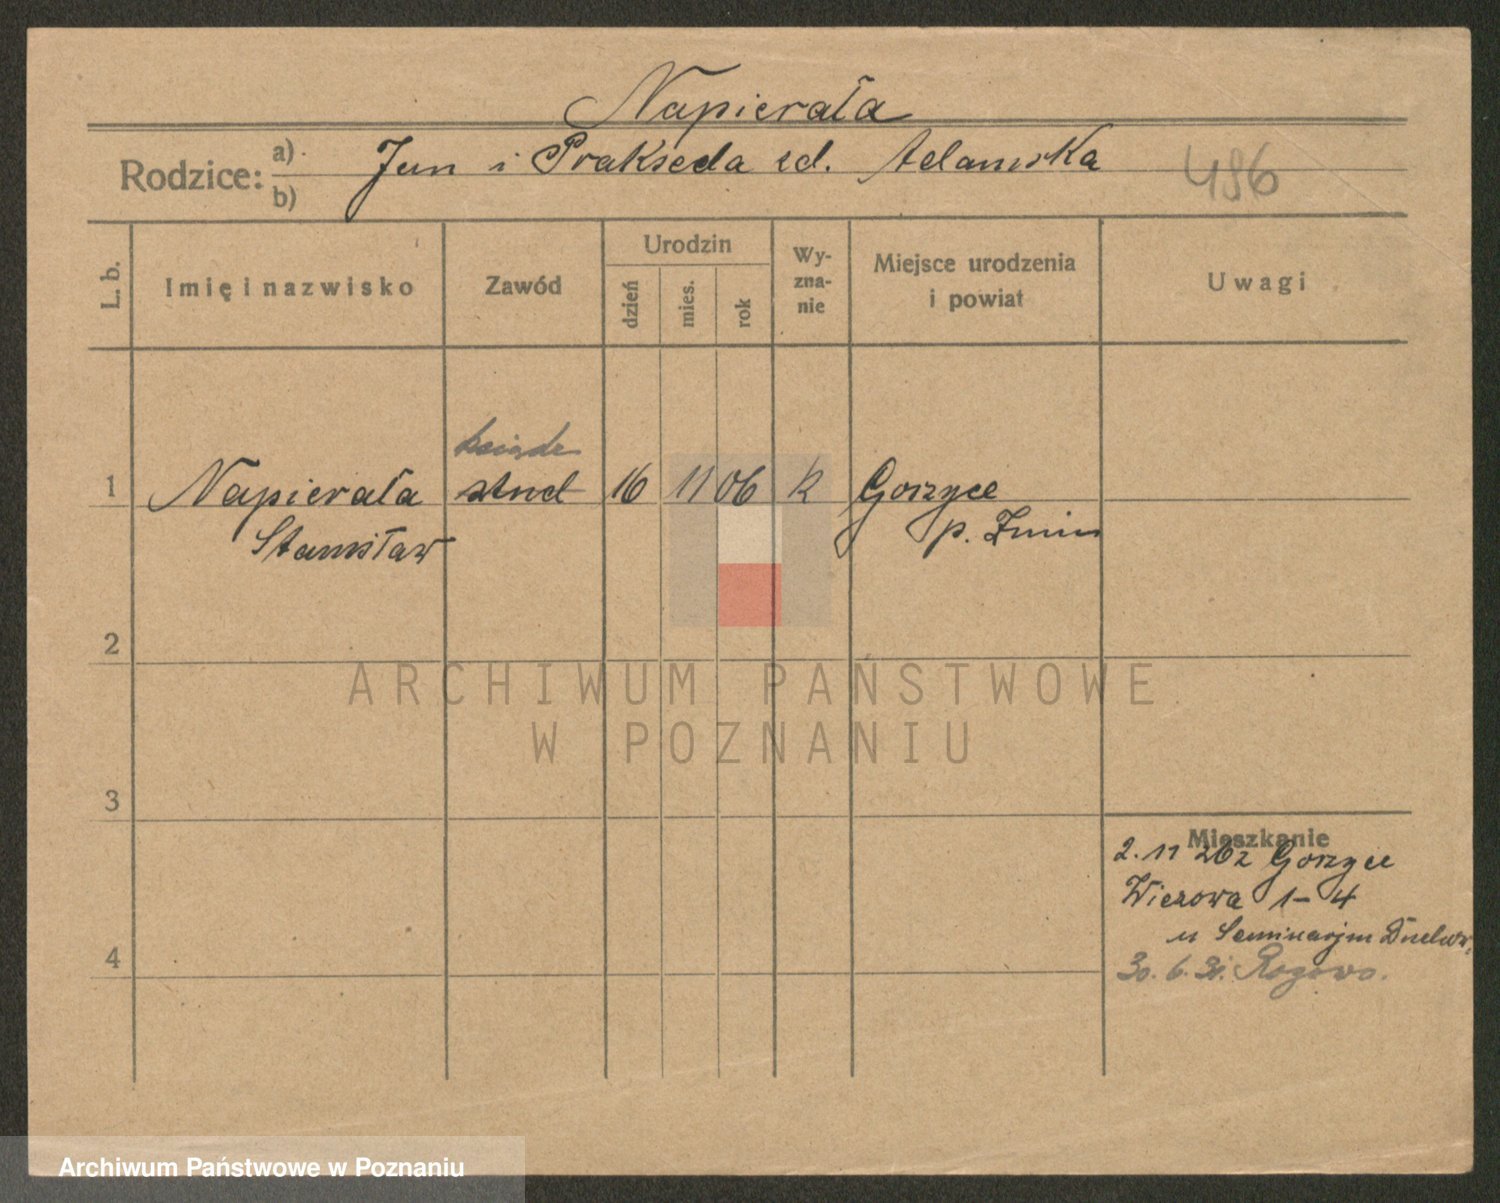 Napierała
Rodzice: a) b) Jan i Prakseda zd. Adamska 486
L. b. Imię i nazwisko Zawód Urodzin dzień mies. rok Wy-zna-nie Miejsce urodzenia i powiat Uwagi
ksiądz
1 Napierała stud 16 11 06 k Gorzyce
Stanisław p. Żnin
2
ARCHIWUM PAŃSTWOWE
W POZNANIU
3
Mieszkanie
2. 11 26 z Gorzyce
Wieżowa 1-4
4
w Seminarjum Duchow.
30. 6. 31. Rogowo.
Archiwum Państwowe w Poznaniu